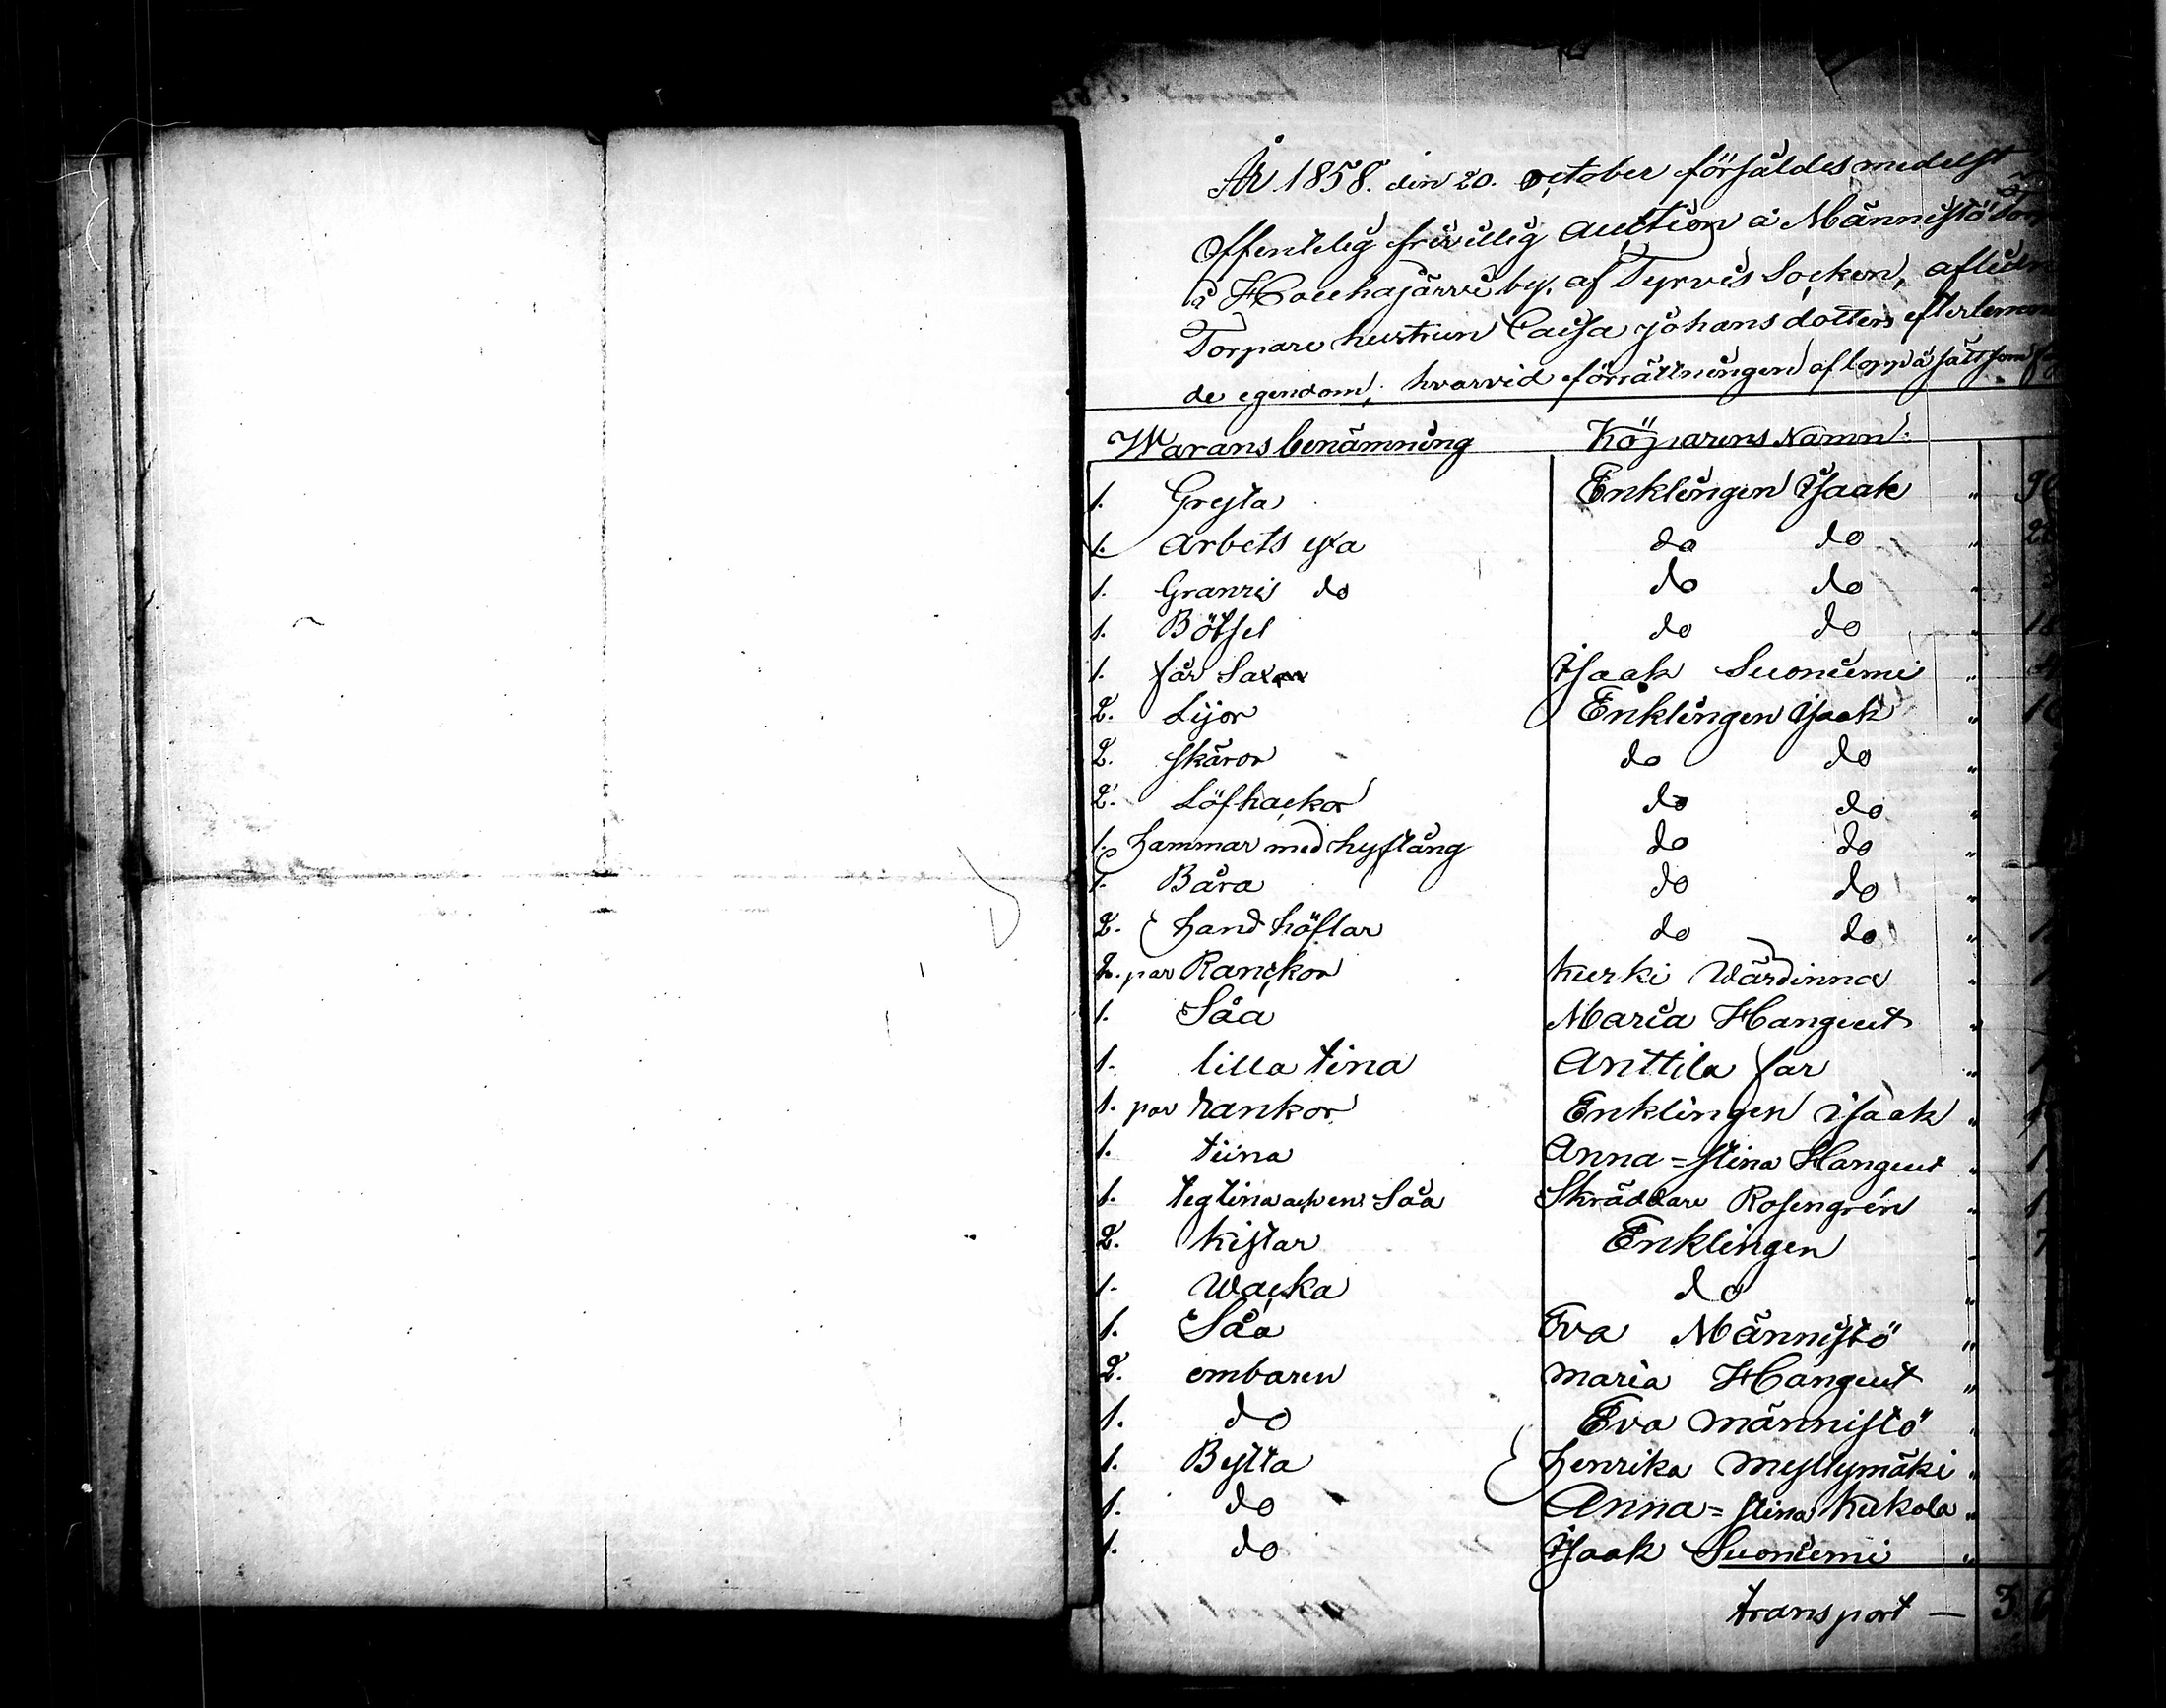 År 1858. den 20. october försåldes medelst
Offentelig frivillig auction å Männistö Torp
i Houhajärvi by, af Tyrvis Socken, afledn
Torpare hustrun Caisa Johans dotters efterlemn
de egendom, hvarvid förrättningen aflopp å sätt som
Warans benämning Köparens Namn.
1. Gryta Enklingen Isaak " 90
1. Arbets yxa do do " 2
1. Granris do do do "
1. Bötsel do do " 1
1. får Sax Isaak Suoniemi "
2. Lijor Enklingen Isaak " 1
2. skäror do do "
2. Löfhackor do do "
1. hammar med hyftång do do "
1. Båra do do "
2. hand höflar do do "
2. par Ranckor Kurki Wärdinna "
1. Såa Maria Hangeut "
1. lilla tina Anttila far "
1. par rankor Enklingen isaak "
1. tiina Anna=stina Hangeut "
1. tegtina ach en Såa Skräddare Rosengrén "
2. kistar Enklingen " 7
1. Wacka do "
1. Såa Eva Männistö "
2. embaren maria Hangeut "
1. do Eva männistö "
1. Bytta henrika myllymäki "
1. do Anna=stina Kukola "
1. do Isaak Suoniemi "
transport — 3.